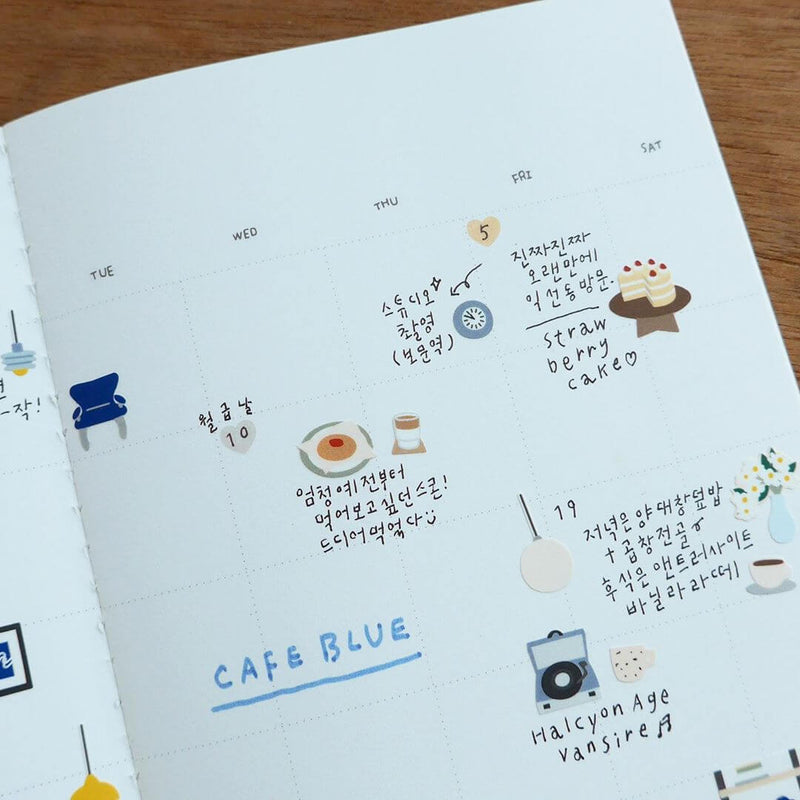 TUE
WED
THU
FRI
SAT
5
스튜디오
촬영
(보문역)
진짜진짜
오랜만에
익선동 방문.
straw
berry
cake♡
작!
월급날
10
엄청 예전부터
먹어보고 싶던 스콘!
드디어 먹었다
19
저녁은 양대창덮밥
+ 곱창전골
후식은 앤트러사이트
바닐라라떼
CAFE BLUE
Halcyon Age
Vansire